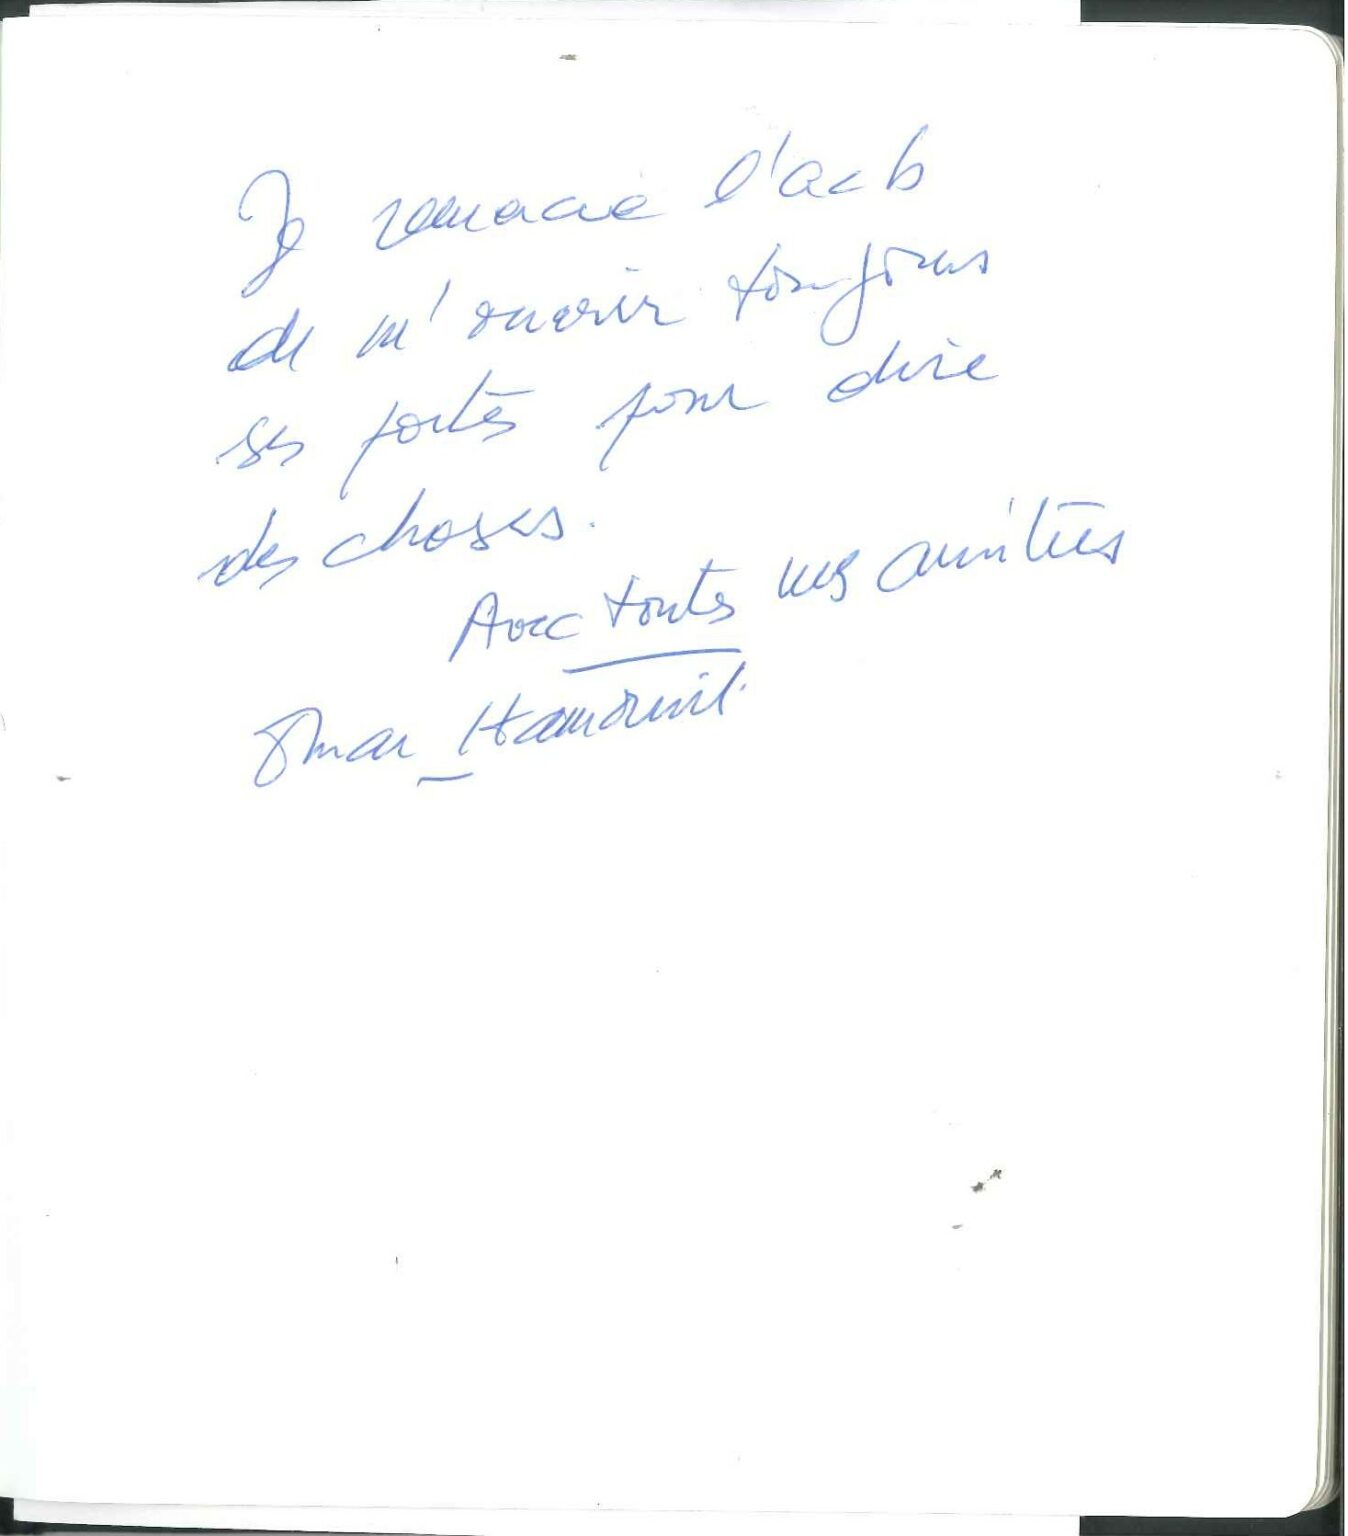 Je remercie l'acb
de m'ouvrir toujours
ses portes pour dire
des choses.
Avec toutes mes amitiés
Omar Hamourit